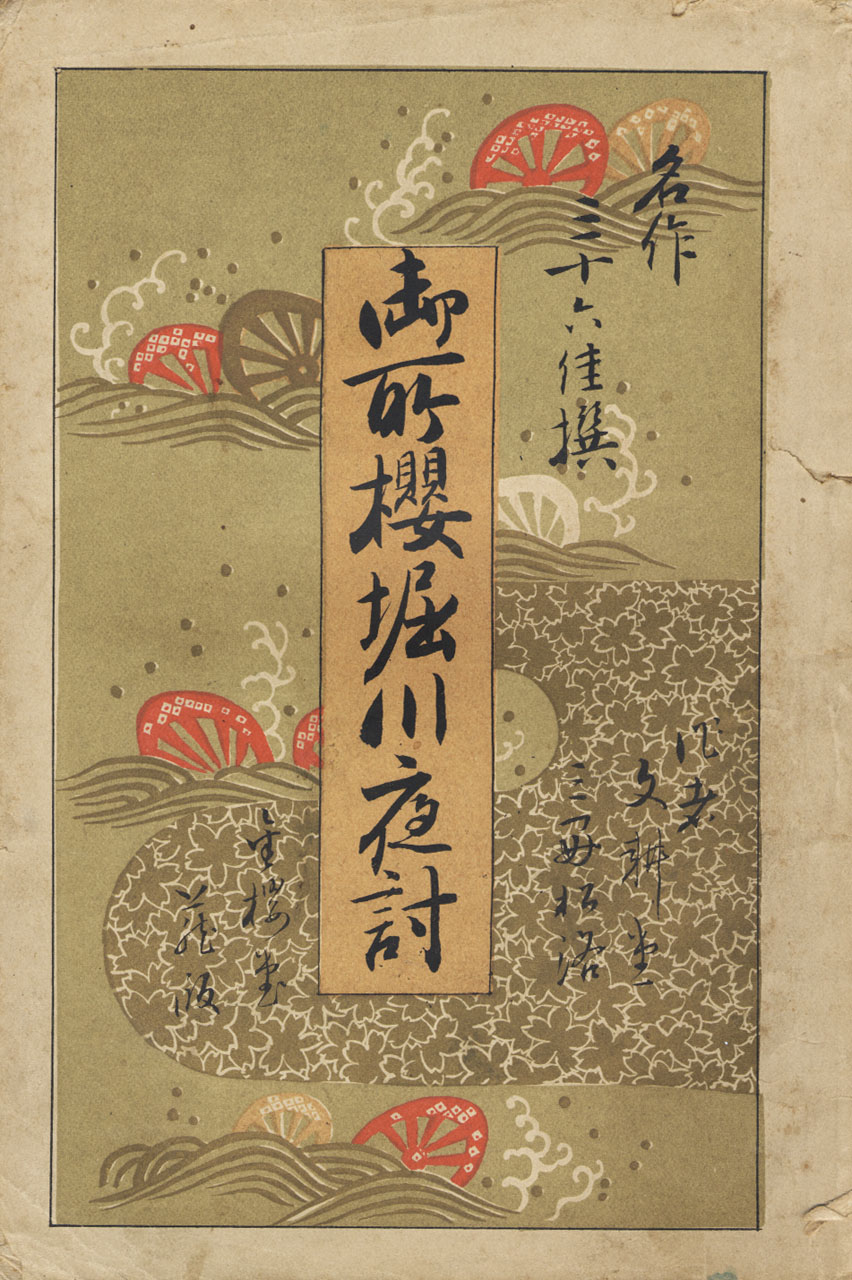 名作
三十六佳撰
御所櫻堀川夜討
作者
文耕堂
三好松洛
金櫻堂
藏版